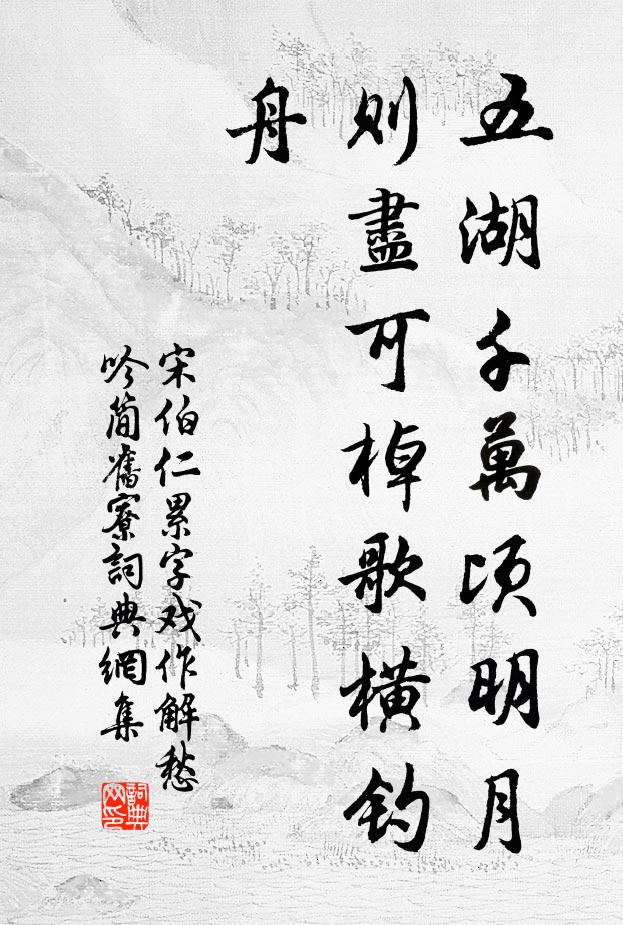 五湖千萬頃明月
則盡可棹歌橫釣
舟
宋伯仁累字戏作解愁
吟簡舊寮詞典網集
詞典
网印